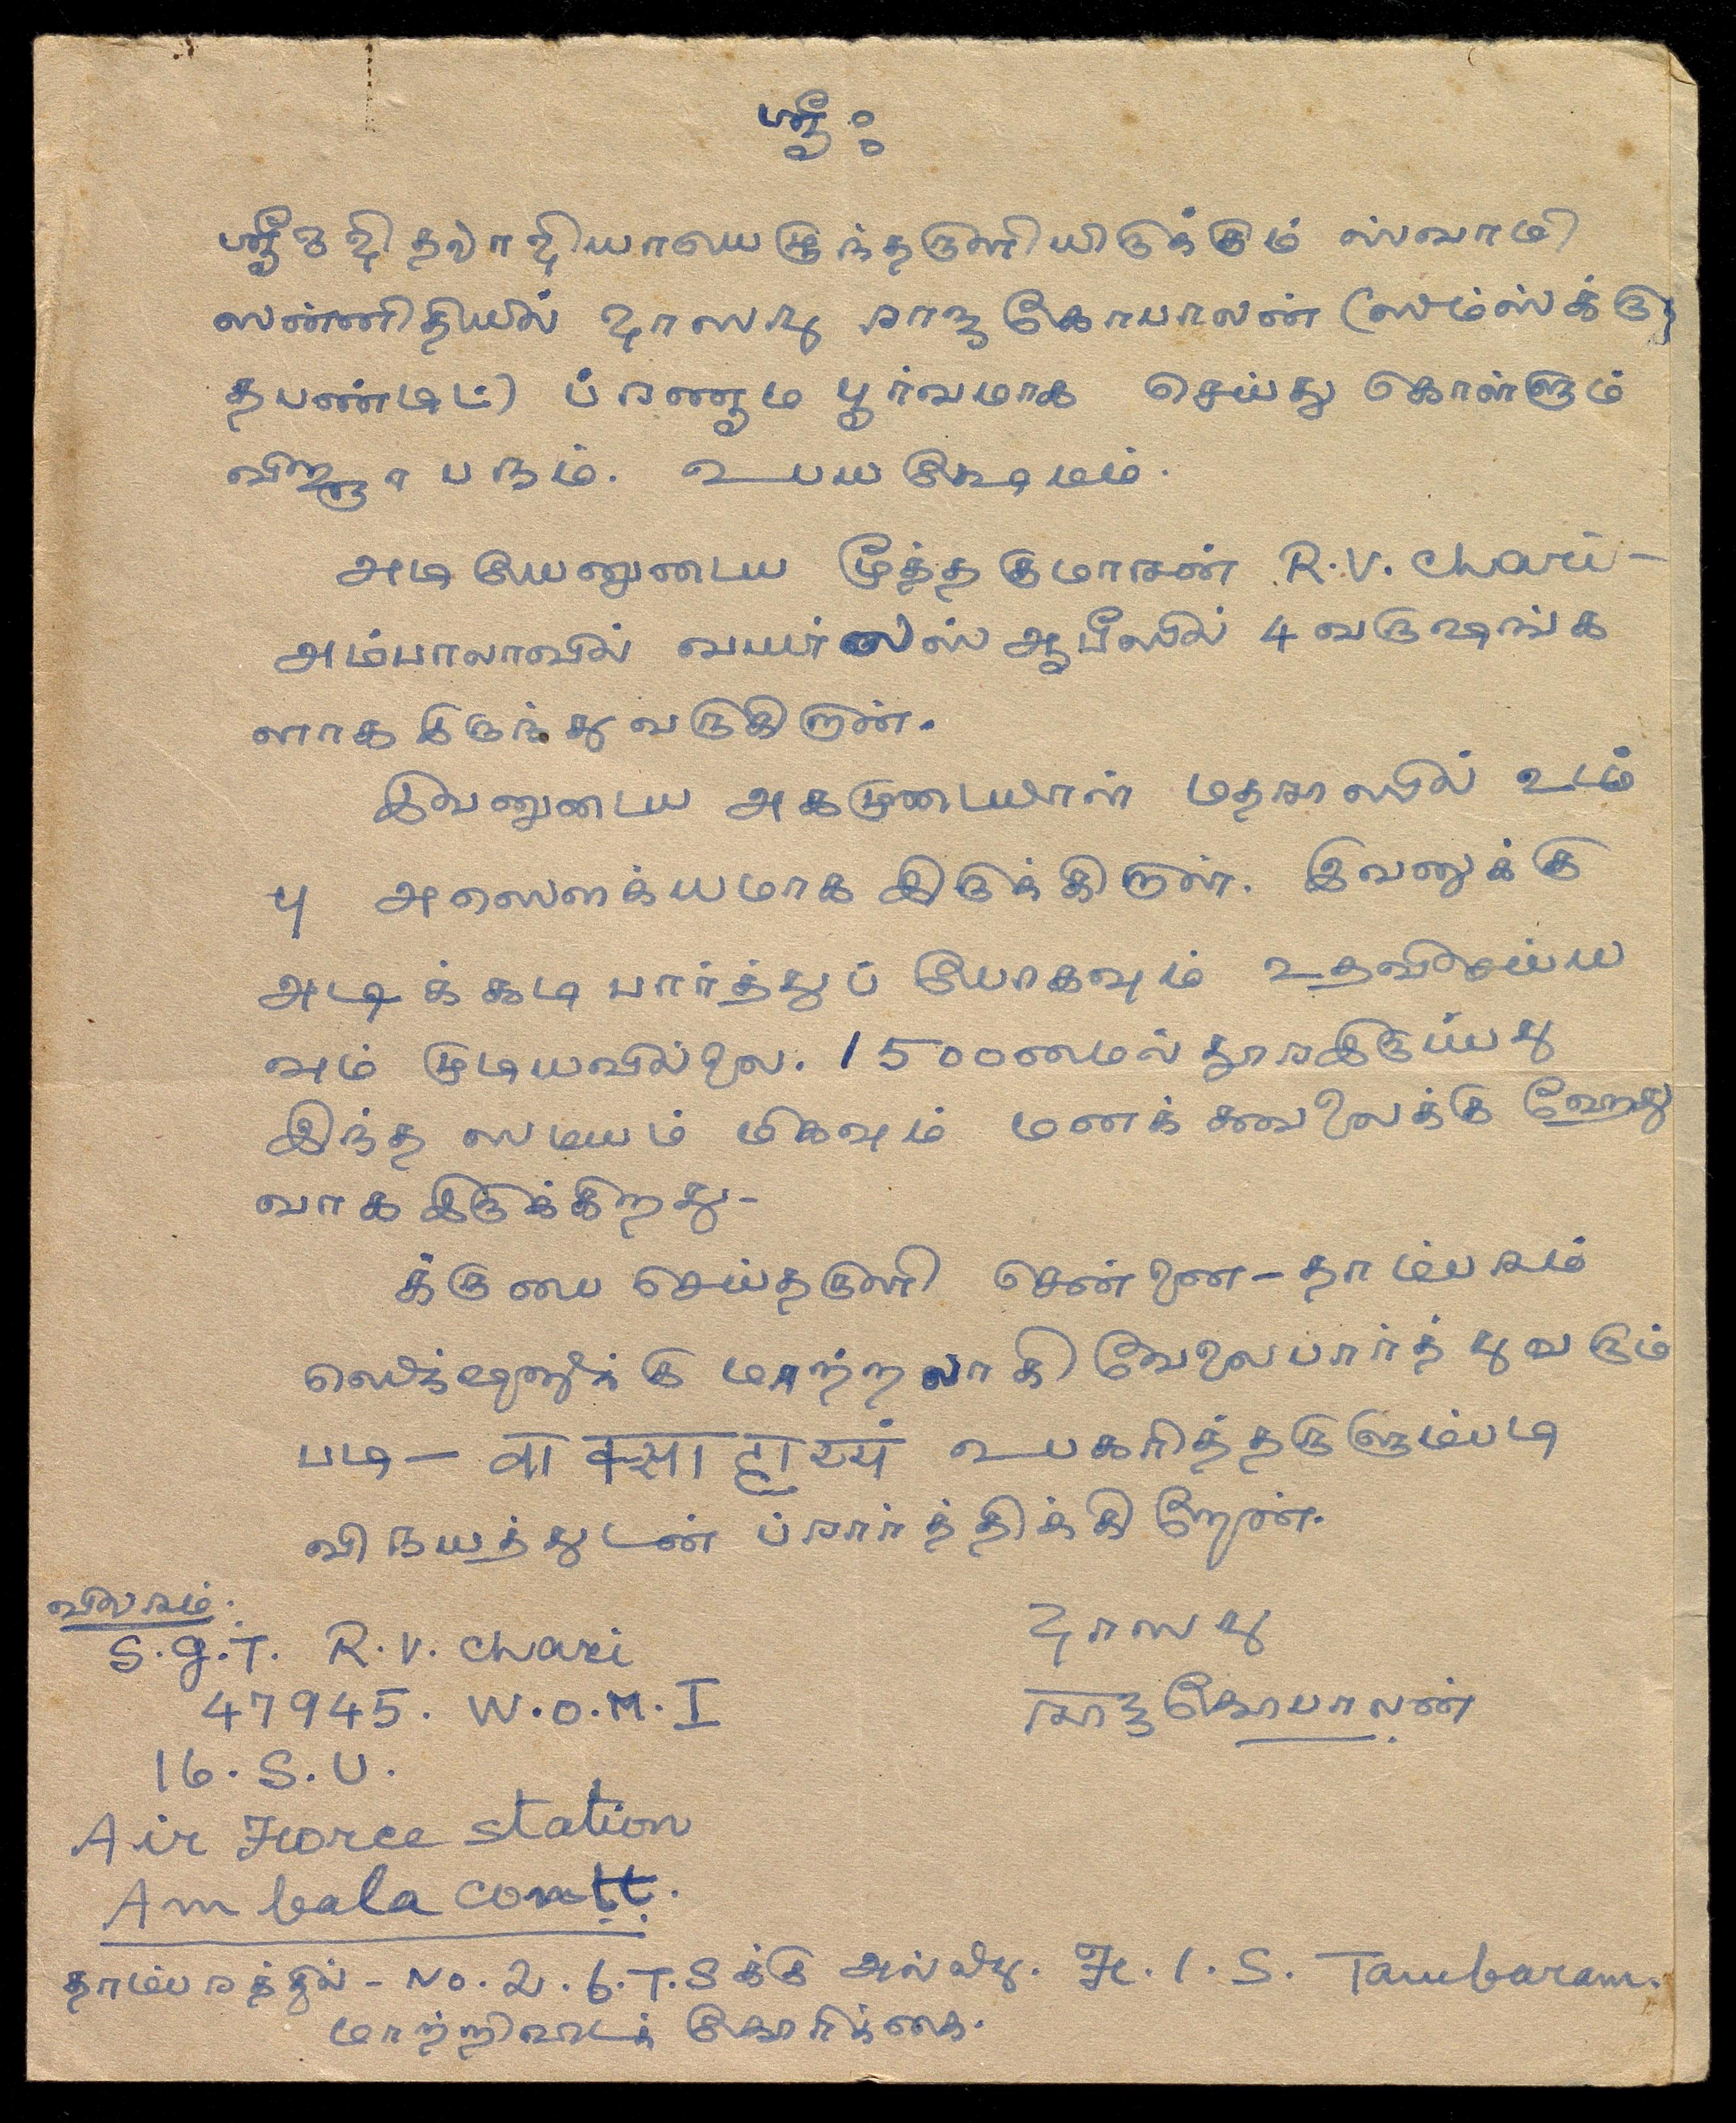 ஸ்ரீ:
எழுந்தருளியிருக்கும் ஸ்வாமி
ஸன்னிதியில் கோபாலன் (ஸம்ஸ்க்ரு
தபண்டிட்) ப்ரணாம பூர்வமாக செய்து கொள்ளும்
விஜ்ஞாபநம். உபய க்ஷேமம்.
அடியேனுடைய மூத்த குமாரன் R.V. Chari -
அம்பாலாவில் வயர்லெஸ் ஆபீஸில் 4 வருஷங்க
ளாக இருந்து வருகிறான்.
இவனுடைய அகமுடையாள் மதராஸில் உடம்
பு அஸௌக்யமாக இருக்கிறாள். இவனுக்கு
அடிக்கடி பார்த்துப் போகவும் உதவிசெய்ய
வும் முடியவில்லை. 1500 மைல் தூரஇருப்பது
இந்த ஸமயம் மிகவும் மனக் கவலைக்கு ஹேது
வாக இருக்கிறது-
க்ருபை செய்தருளி சென்னை - தாம்பரம்
ஸெக்ஷனுக்கு மாற்றலாகி வேலைபார்த்துவரும்
படி - वाक्साहाय्यं உபகரித்தருளும்படி
விநயத்துடன் ப்ரார்த்திக்கிறேன்.
விலாஸம்.
S.g.T. R.V. Chari
47945. W.O.M.I
16. S.U.
Air Force Station
Ambala Cantt.
கோபாலன்
தாம்பரத்தில் - No. 2. க்கு அல்லது. F. I. S. Tambaram.
மாற்றிவிடக் கோரிக்கை.